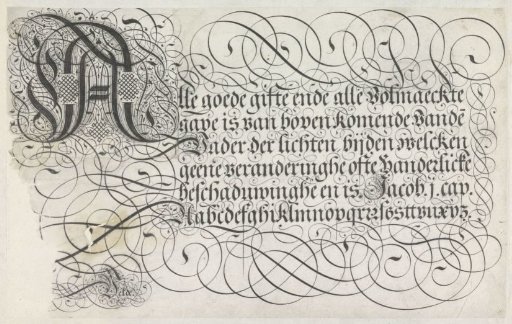 Alle goede gifte ende alle Volmaeckte
gave is van boven komende vandē
Vader der lichten, bijden welcken
geene veranderinghe ofte Vanderlicke
beschaduwinghe en is. Jacob. j. cap.
Aabcdefghiklmnopqrzsssttvuxyz.